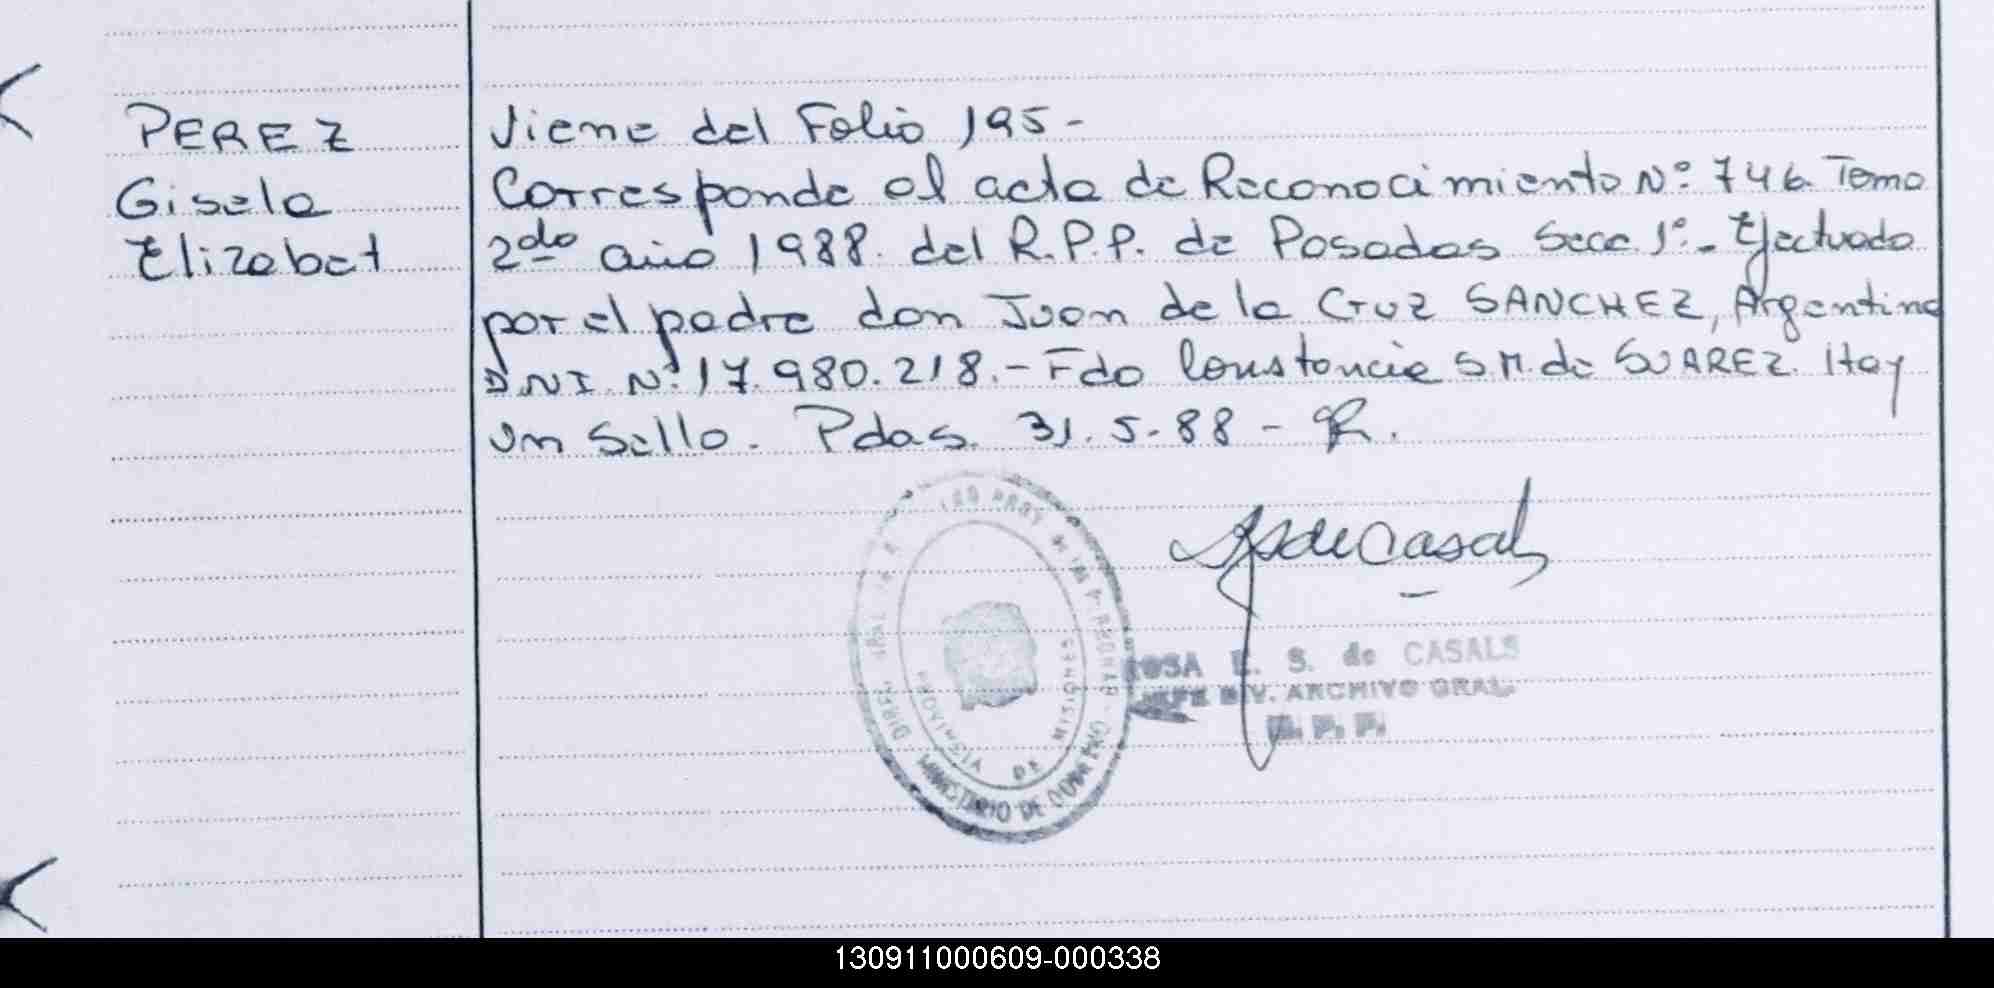 PEREZ
Gisela
Elizabet
Viene del Folio 195-
Corresponde al acta de Reconocimiento Nº 746. Tomo
2do año 1988. del R.P.P. de Posadas Secc. 1º.- Efectuado
por el padre don Juan de la Cruz SANCHEZ, Argentino
DNI. Nº. 17.980.218.- Fdo Constancia S.M. de SUAREZ. Hay
un Sello. Pdas. 31.5-88-
PROV. DE LAS P
MINISTERIO DE GOBIERNO
PROVINCIA DE MISIONES
S. de Casals
ROSA E. S. de CASALS
JEFE DIV. ARCHIVO GRAL.
R. P. P.
130911000609-000338